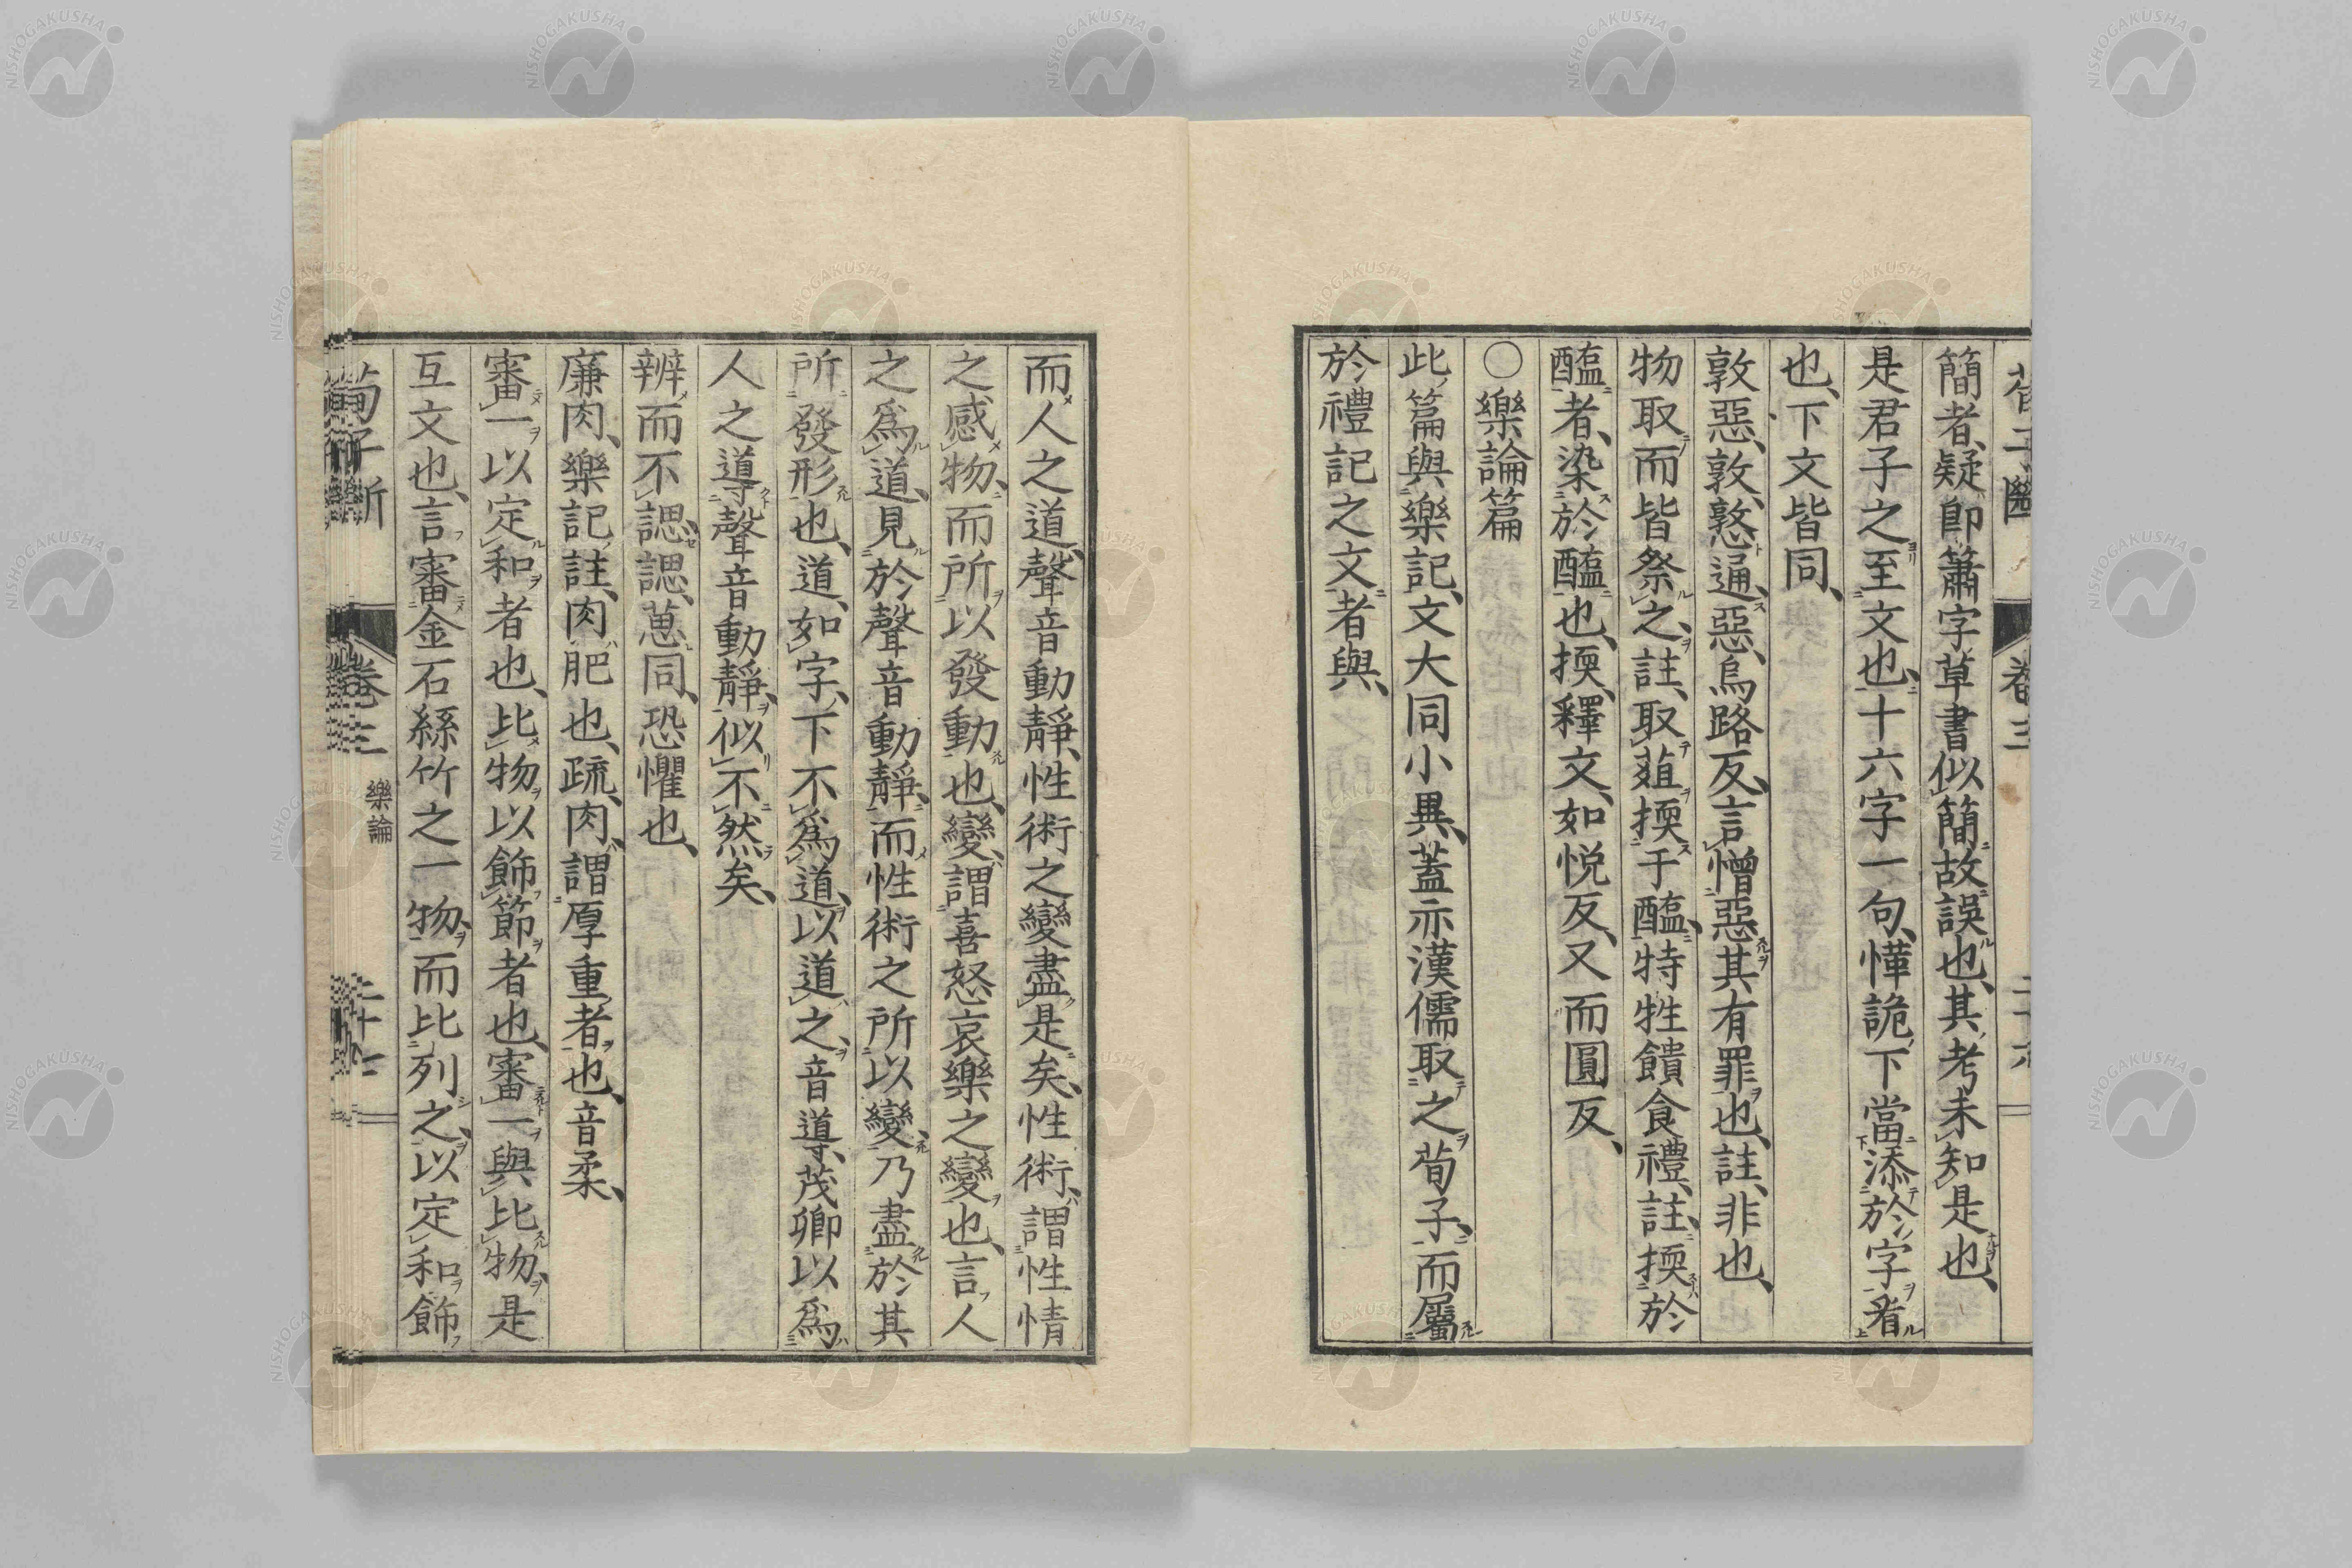 簡者、疑即簫字草書似簡故誤也、其考未知是也、
是君子之至文也、十六字一句、愅詭、下當添於字者
也、下文皆同、
敦惡、敦、憝通、惡、烏路反、言憎惡其有罪也、註、非也、
物取而皆祭之、註、取菹擩于醢、特牲饋食禮、註、擩於
醢者、染於醢也、擩、釋文、如悅反、又而圓反、
○樂論篇
此篇與樂記、文大同小異、蓋亦漢儒取之荀子、而屬
於禮記之文者與、
而人之道、聲音動靜、性術之變盡是矣、性術、謂性情
之感物、而所以發動也、變、謂喜怒哀樂之變也、言人
之爲道、見於聲音動靜、而性術之所以變、乃盡於其
所發形也、道、如字、下不爲道、以道之、音導、茂卿以爲
人之導聲音動靜、似不然矣、
辨而不諰、諰、葸同、恐懼也、
廉肉、樂記、註、肉肥也、疏、肉、謂厚重者也、音柔、
審一以定和者也、比物以飾節者也、審一與比物、是
互文也、言審金石絲竹之一物、而比列之、以定和飾
荀子斷 卷三 樂論